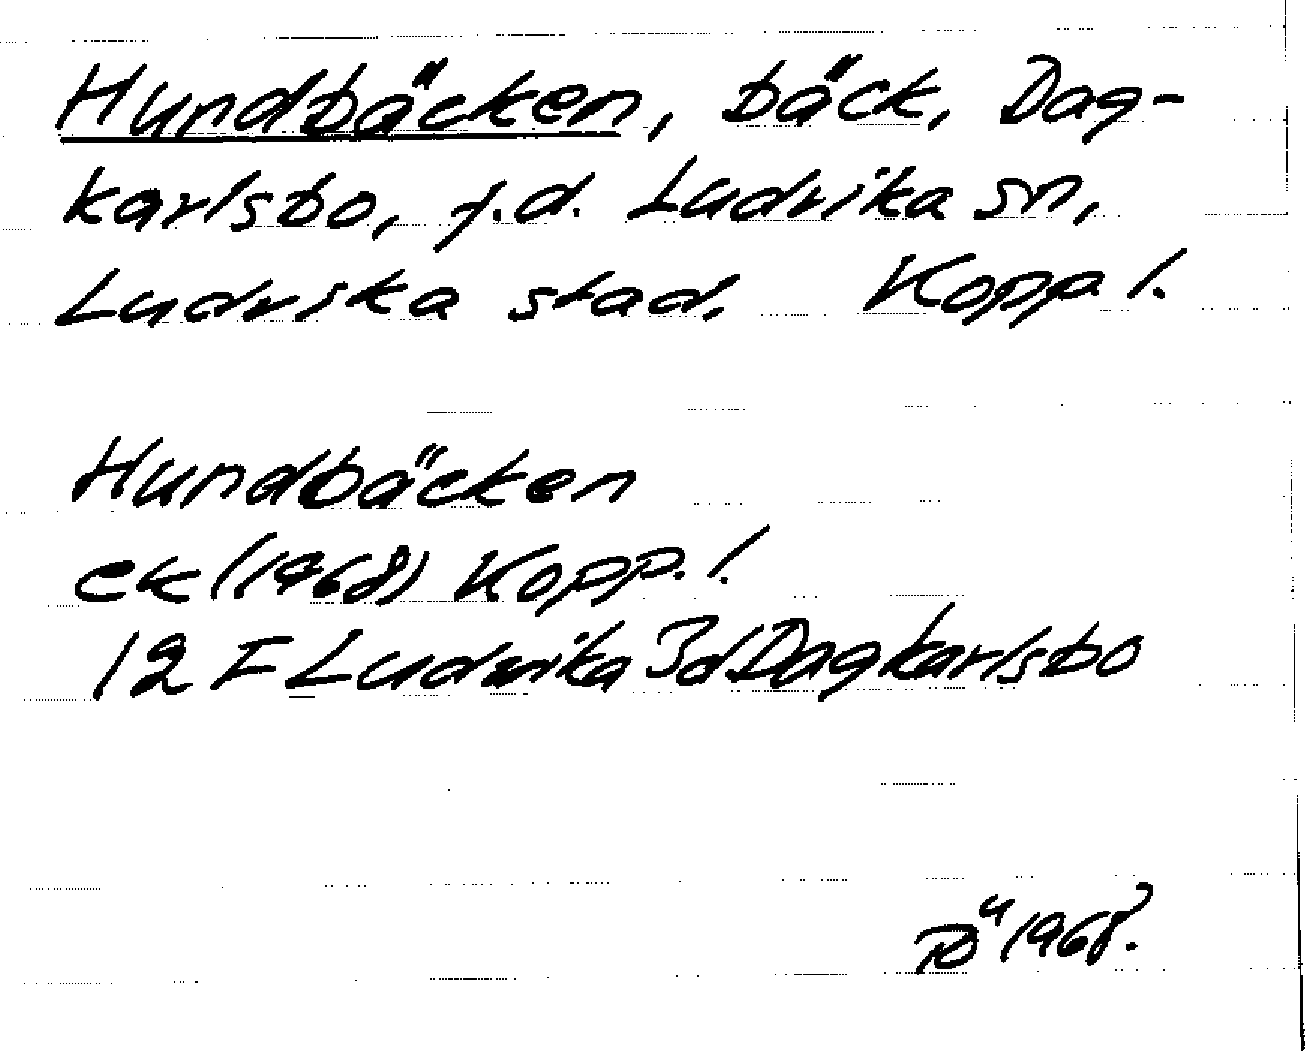 Hundbäcken, bäck, Dag-
karlsbo, f.d. Ludvika sn,
Ludvika stad. Kopp l.
Hundbäcken
ek (1968) Kopp. l.
12 F Ludvika 3d Dagkarlsbo
1968.